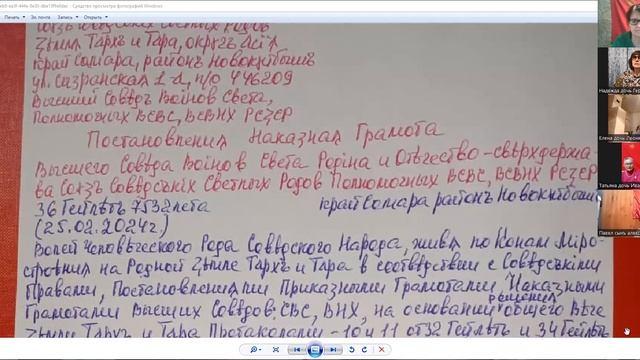 Печать Эл. почта Запись Открыть
Союзъ Совѣдскiх Свѣтлых Родов
Ζемля Тархъ и Тара, округъ Асiя
край Самара, районъ Новокуйбышъ
ул. Сызранская 1 а, п/о 446209
Высшiй Совѣдъ Воiнов Света,
Полномочных ВСВС, ВСВНХ РСЗСР
Постановления Наказная Грамота
Высшего Совѣда Воiнов Света Родiна и Отѣчество-свѣрхдержа-
ва Союзъ Совѣдскiх Светлых Родов Полномочных ВСВС, ВСВНХ РСЗСР
36 Гейлѣтъ 7532 лета край Самара районъ Новокуйбышъ
(25.02.2024г.)
Волей Человѣческого Рода Совѣдского Народа, живя по Конам Мiро-
строения на Родной Земле Тархъ и Тара в соотвѣдствии с Совѣдскiми
Правами, Постановлениями Приказными Грамотами, Наказными
Грамотами Высших Совѣдов: СВС, ВНХ, на основании решения общего Вѣча
Земли Тархъ и Тара Протаколами - 10 и 11 от 32 Гейлѣтъ и 34 Гейлѣтъ
Надежда дочь Гер
Елена дочь
Татьяна дочь Ива
Павел сынъ алекс